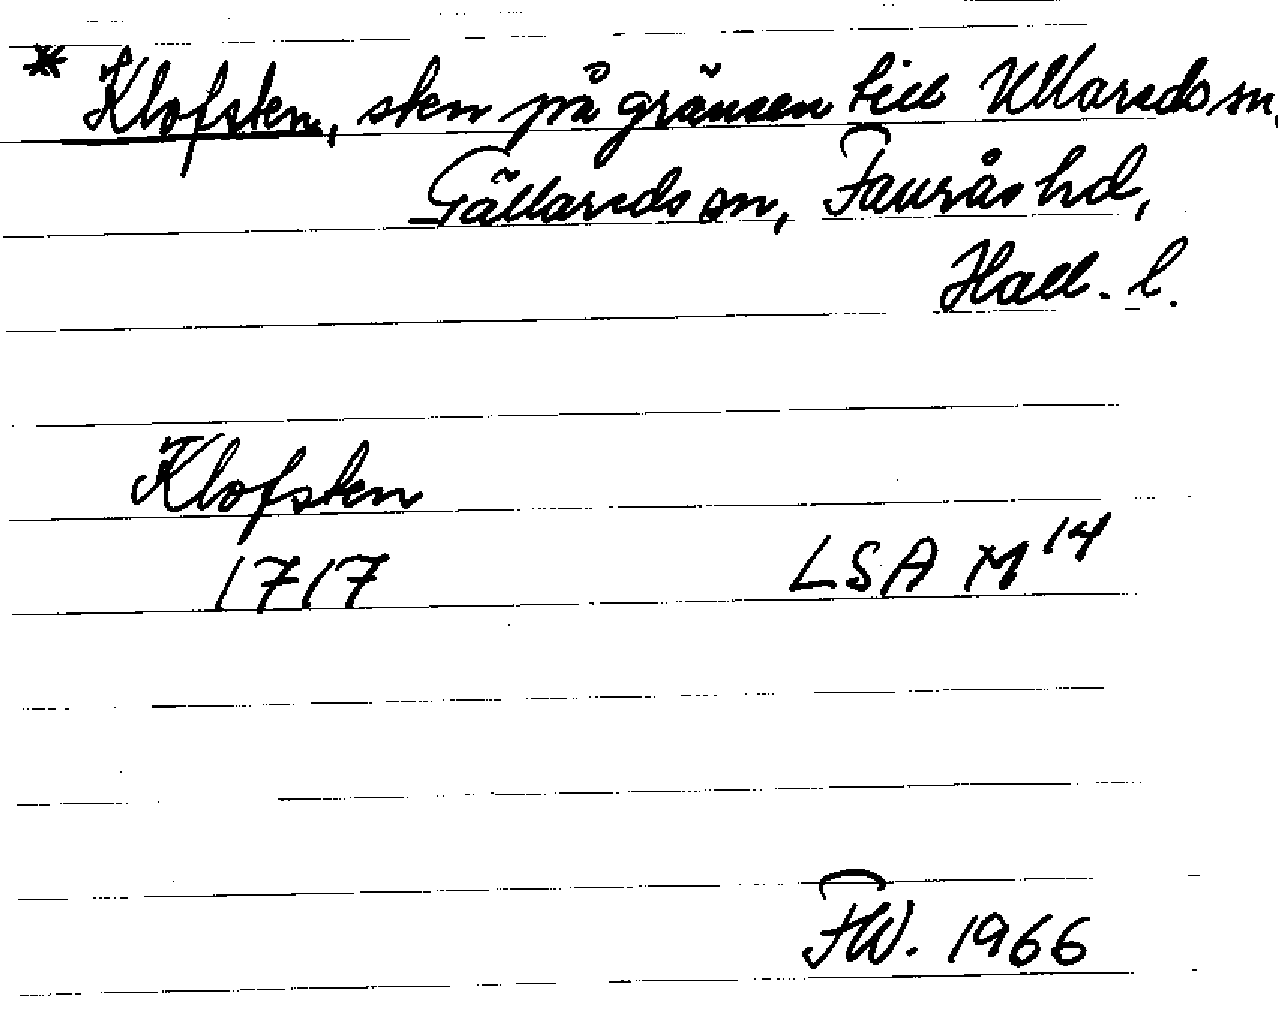 * Klofsten, sten på gränsen till Ullareds sn,
Gällareds sn, Faurås hd,
Hall. l.
Klofsten
1717 LSA M14
FW. 1966